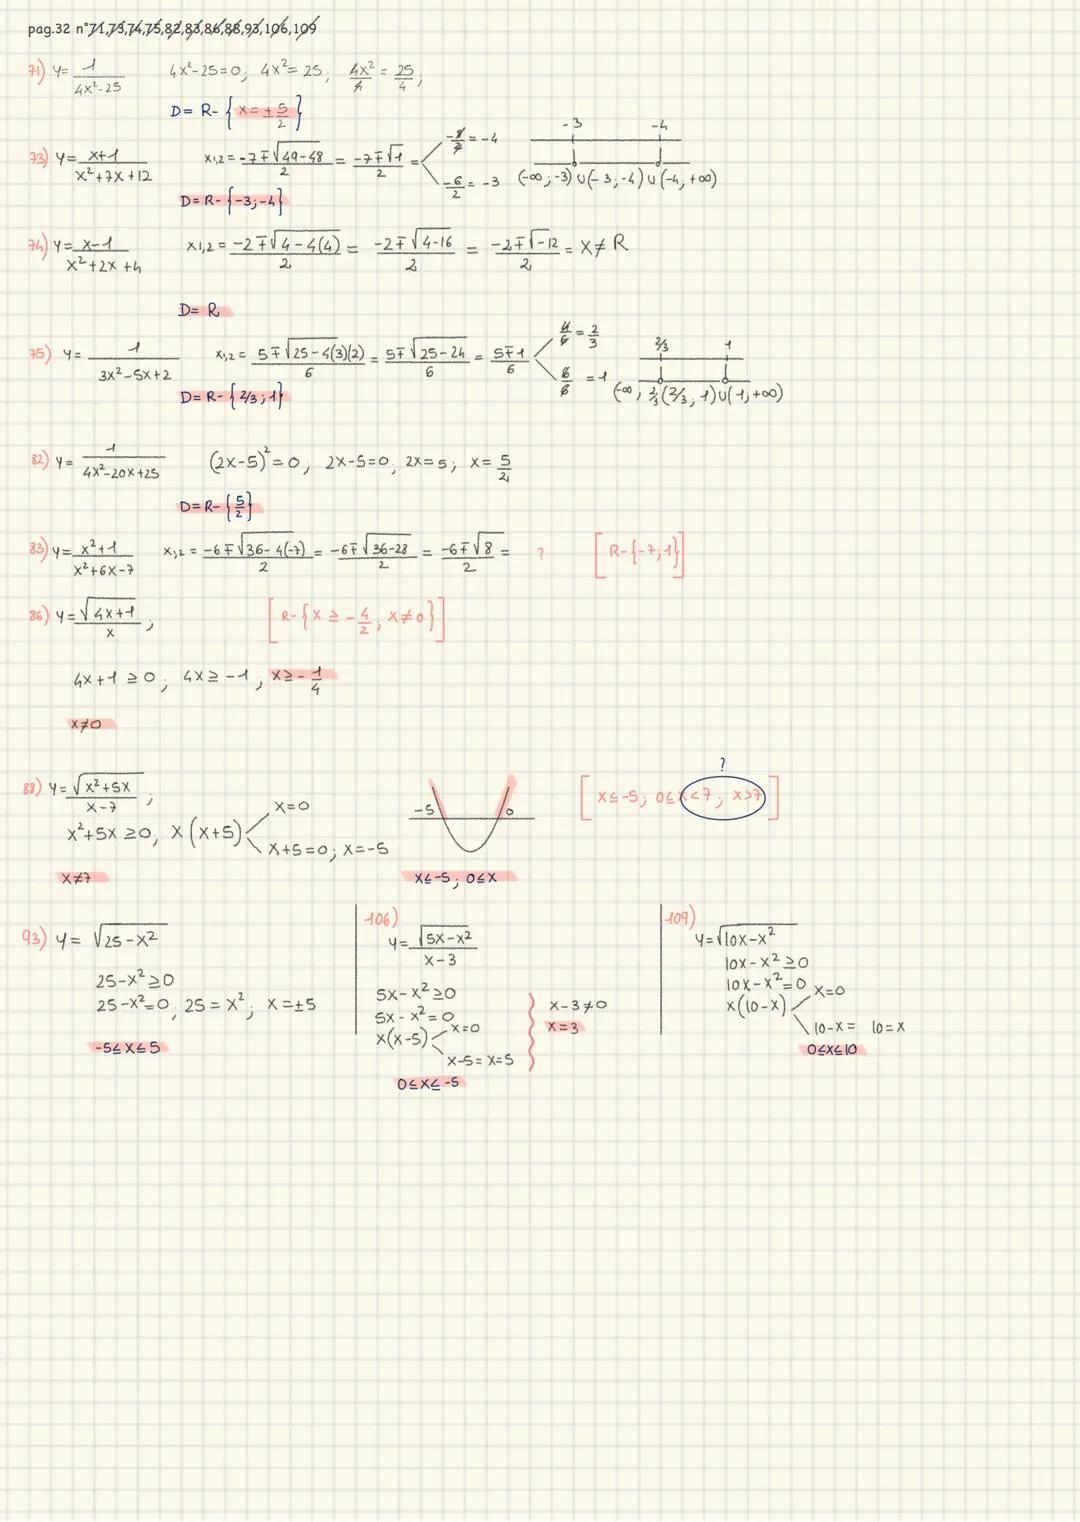 pag.32 n°71,73,74,75,82,83,86,88,93,106,109
71) y= 1/(4x²-25)   4x²-25=0; 4x²=25; 4x²/4 = 25/4;
D= R- {x=±5/2}
73) y= (x+1)/(x²+7x+12)   x1,2 = (-7∓√(49-48))/2 = (-7∓√1)/2 =   -8/2 = -4   -6/2 = -3   -3   -4
(-∞;-3)∪(-3;-4)∪(-4,+∞)
D= R- {-3;-4}
74) y= (x-1)/(x²+2x+4)   x1,2 = (-2∓√(4-4(4)))/2 = (-2∓√(4-16))/2 = (-2∓√-12)/2 = x≠R
D= R
75) y= 1/(3x²-5x+2)   x1,2 = (5∓√(25-4(3)(2)))/6 = (5∓√(25-24))/6 = (5∓1)/6   4/6 = 2/3   6/6 = 1   2/3   1
(-∞; 2/3(2/3; 1)∪(1;+∞)
D= R- {2/3;1}
82) y= 1/(4x²-20x+25)   (2x-5)²=0; 2x-5=0; 2x=5; x= 5/2
D=R- {5/2}
83) y= (x²+1)/(x²+6x-7)   x1,2 = (-6∓√(36-4(-7)))/2 = (-6∓√(36-28))/2 = (-6∓√8)/2 = ?   [R-{-7;1}]
86) y= √(4x+1)/x ;   [R-{x ≥ -4/2; x≠0}]
4x+1 ≥0; 4x≥ -1; x≥ - 1/4
x≠0
?
88) y= √(x²+5x)/(x-7) ;   x=0   -5   0   [x≤-5; 0≤x<7; x>7]
x²+5x ≥0; x(x+5)   x+5=0; x=-5
x≠7   x≤-5; 0≤x
93) y= √(25-x²)
25-x²≥0
25-x²=0; 25=x²; x=±5
-5≤x≤5
106)
y= √(5x-x²)/(x-3)
5x-x²≥0
5x-x²=0
x(x-5)   x=0
x-5= x=5
0≤x≤-5
x-3≠0
x=3
109)
y=√(10x-x²)
10x-x²≥0
10x-x²=0
x(10-x)   x=0
10-x=   10=x
0≤x≤10